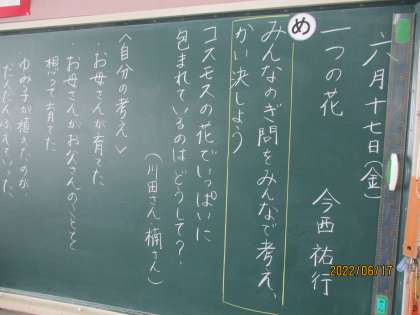 六月十七日(金)
一つの花 今西祐行
め
みんなのぎ問をみんなで考え、
かい決しよう
コスモスの花でいっぱいに
包まれているのはどうして?
(川田さん 楠さん)
〈自分の考え〉
・お母さんが育てた
・お母さんがお父さんのことを
想って育てた
ゆみ子が植えたのが、
だんだんふえていった
2022/06/17